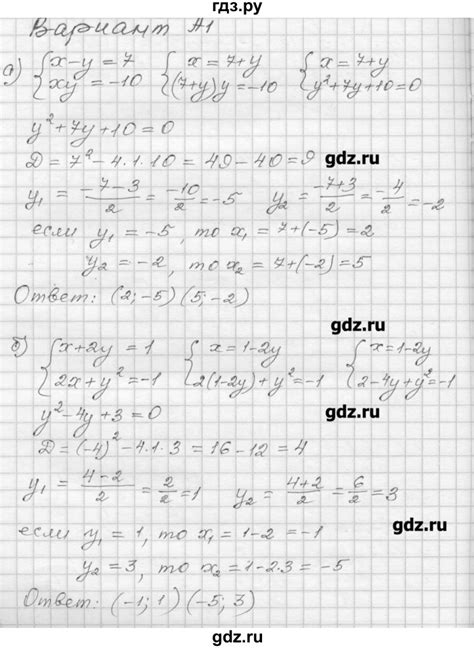 гдз.ру
Вариант А1
а) { x-y=7 { x=7+y { x=7+y
xy=-10 (7+y)y=-10 y²+7y+10=0
y²+7y+10=0
D=7²-4·1·10=49-40=9
gdz.ru
y₁=(-7-3)/2=-10/2=-5 y₂=(-7+3)/2=-4/2=-2
если y₁=-5, то x₁=7+(-5)=2
y₂=-2, то x₂=7+(-2)=5
gdz.ru
Ответ: (2;-5) (5;-2)
gdz.ru
б) { x+2y=1 { x=1-2y { x=1-2y
2x+y²=-1 2(1-2y)+y²=-1 2-4y+y²=-1
y²-4y+3=0
gdz.ru
D=(-4)²-4·1·3=16-12=4
y₁=(4-2)/2=2/2=1 y₂=(4+2)/2=6/2=3
gdz.ru
если y₁=1, то x₁=1-2=-1
y₂=3, то x₂=1-2·3=-5
Ответ: (-1;1) (-5;3)
gdz.ru